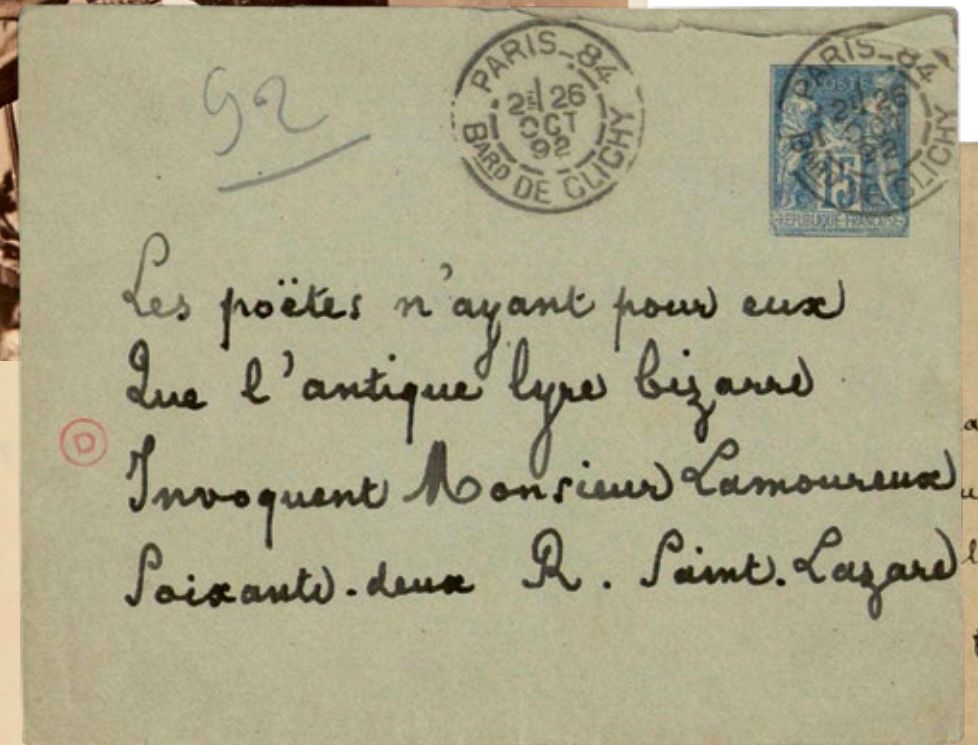 92
PARIS_84
2E 26
OCT
92
BARD DE CLICHY
PARIS_84
26
OCT
92
BARD DE CLICHY
POSTES
15
REPUBLIQUE FRANCAISE
Les poëtes n'ayant pour eux
Que l'antique lyre bizarre
Invoquent Monsieur Lamoureux
Soixante-deux R. Saint-Lazare
D